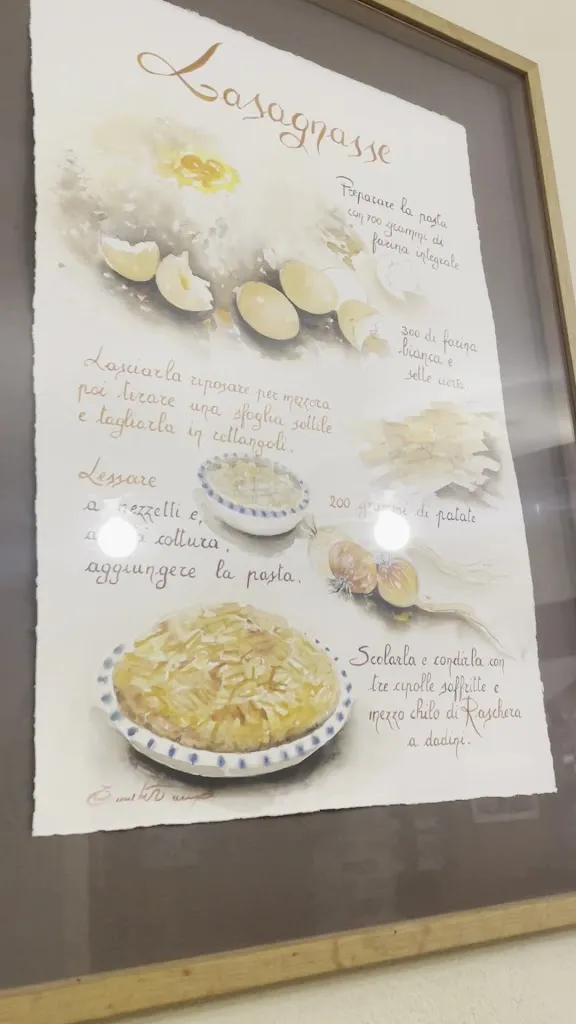 Lasagnasse
Preparare la pasta
con 700 grammi di
farina integrale
300 di farina
bianca e
sette uova
Lasciarla riposare per mezzora
poi tirare una sfoglia sottile
e tagliarla in rettangoli.
Lessare
200 grammi di patate
a pezzetti e,
a cottura,
aggiungere la pasta.
Scolarla e condirla con
tre cipolle soffritte e
mezzo chilo di Raschera
a dadini.